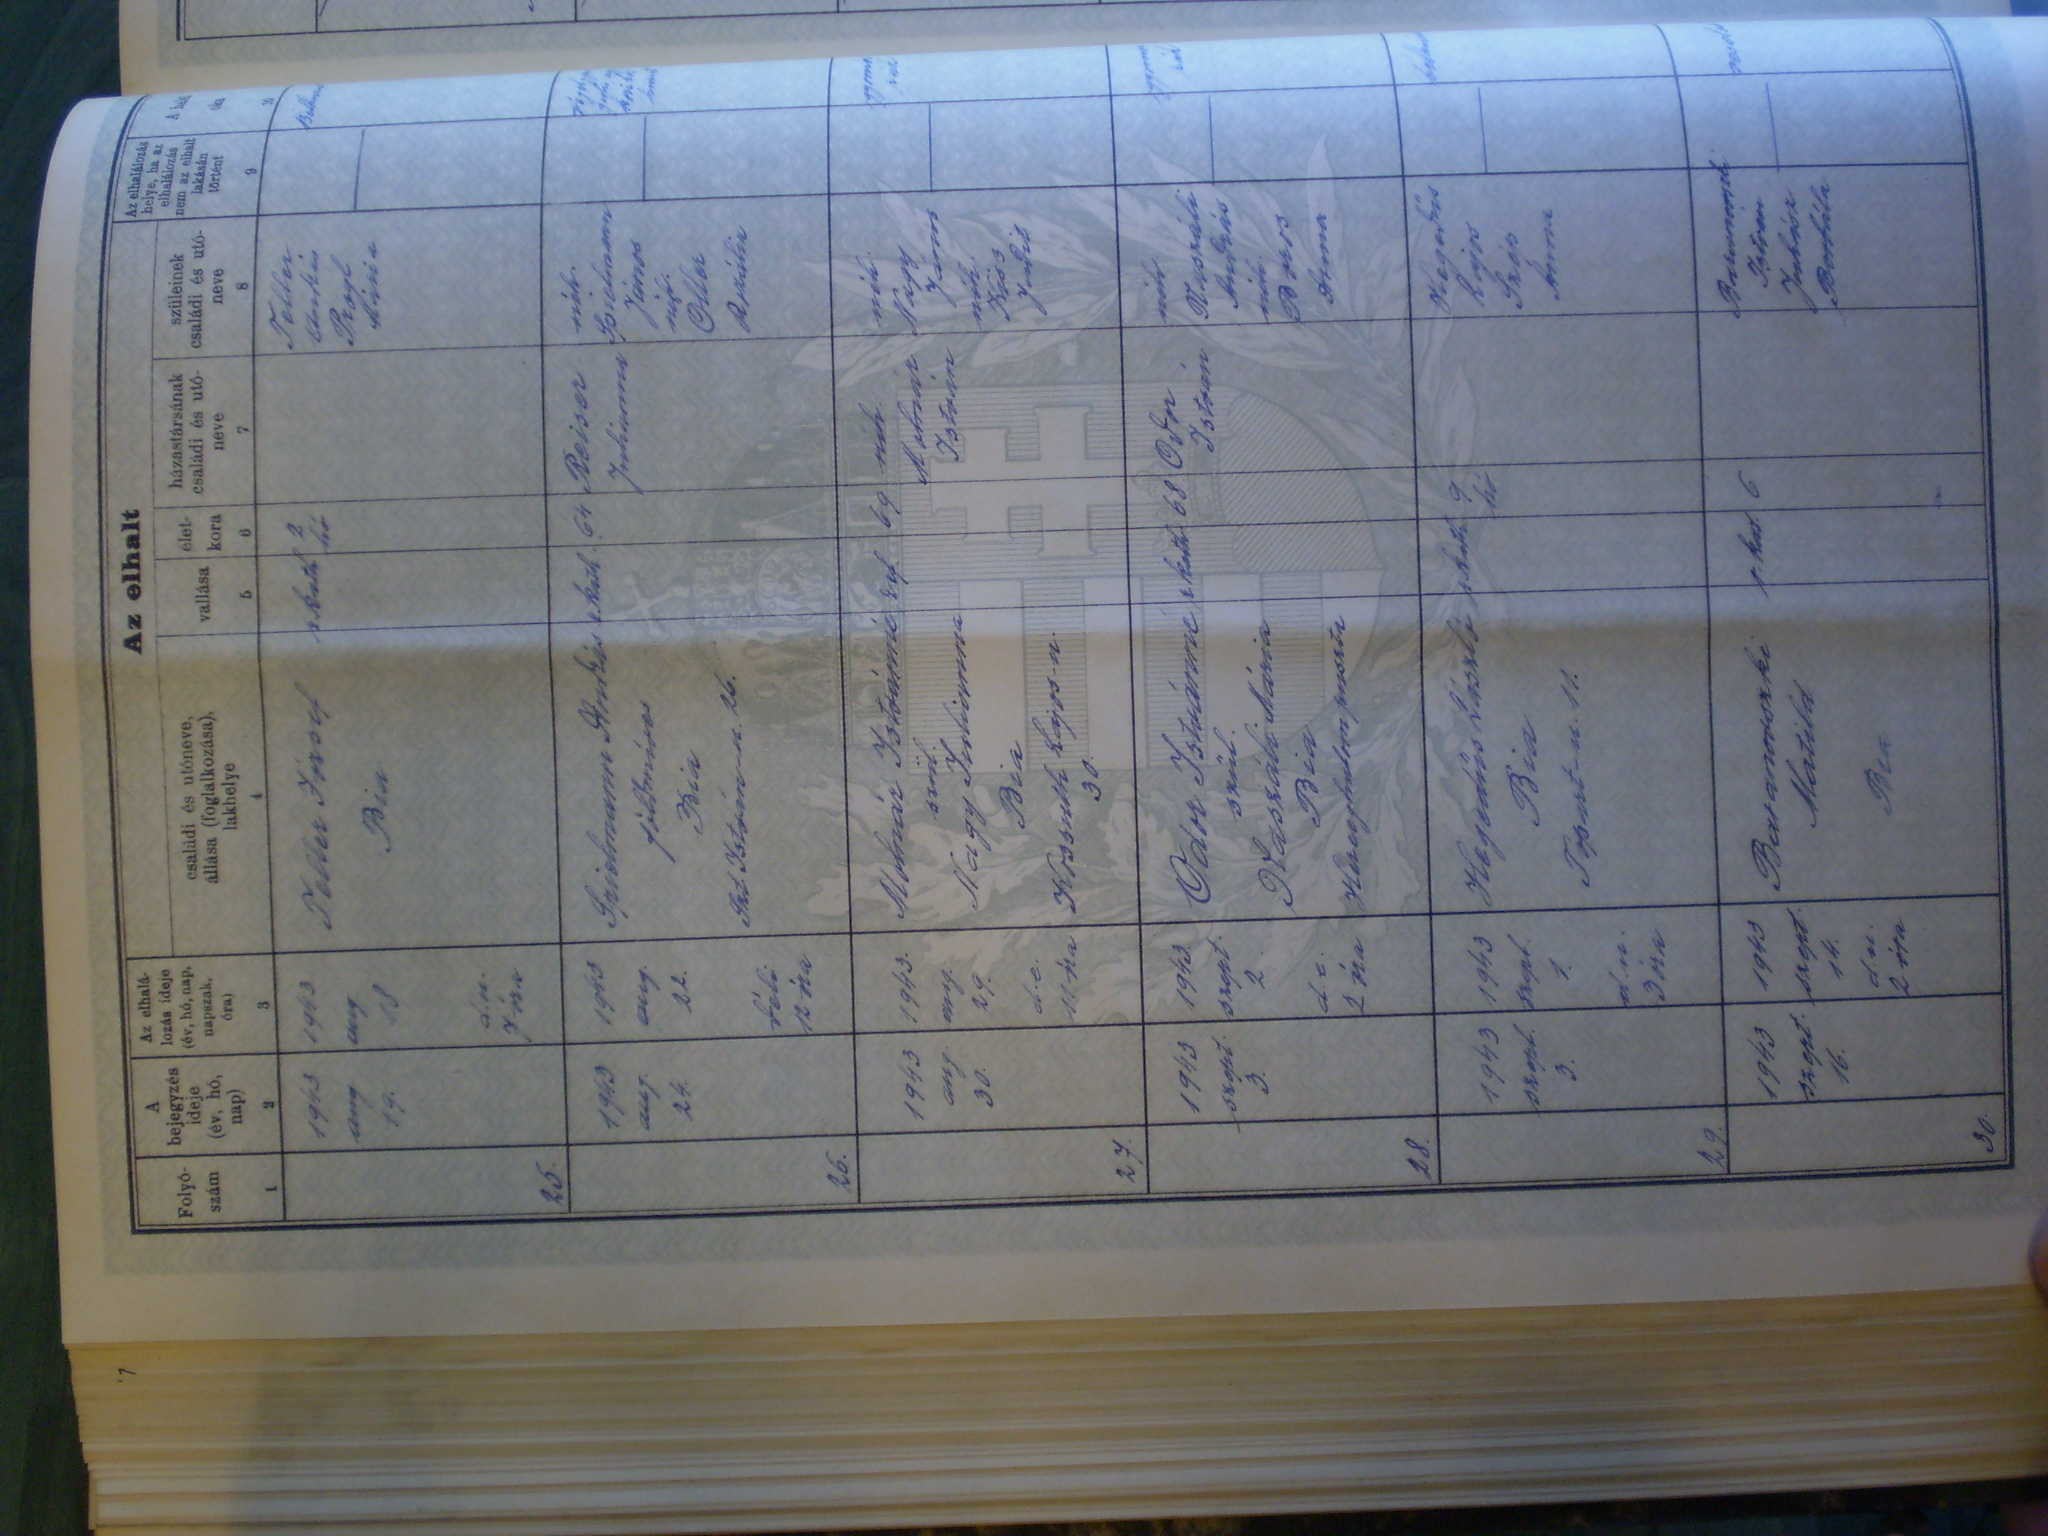 Az elhalt
Folyó-
szám
A
bejegyzés
ideje
(év, hó,
nap)
Az elhalá-
lozás ideje
(év, hó, nap,
napszak,
óra)
családi és utóneve,
állása (foglalkozása),
lakhelye
vallása
élet-
kora
házastársának
családi és utó-
neve
szüleinek
családi és utó-
neve
Az elhalálozás
helye, ha az
elhalálozás
nem az elhalt
lakásán
történt
A halál
oka
1
2
3
4
5
6
7
8
9
10
25.
1943
aug
19.
1943
aug
18
d.u.
7 óra
Teller József
Bia
r. kath
2
hó
Teller
Mária
26.
1943
aug.
24.
1943
aug.
22.
déli
12 óra
Spielmann András
földműves
Bia
Szt. István-u. 26.
r. kath.
64
Reiser
Julianna
néh.
Spielmann
János
néh.
Rozália
27.
1943
aug.
30.
1943.
aug.
29.
d.e.
11 óra
Molnár Istvánné
szül.
Nagy Julianna
Bia
Kossuth Lajos-u.
30.
ref.
69
néh.
Molnár
István
néh.
Nagy
János
néh.
Judit
28.
1943
szept.
3.
1943.
szept.
2.
d.e.
2 óra
Odor Istvánné
szül.
Mária
Bia
r. kath
68
Odor
István
néh.
András
néh.
Anna
29.
1943
szept.
3.
1943
szept.
1.
d.u.
3 óra
Hegedűs László
Bia
r. kath.
9
hó
Hegedűs
Lajos
Anna
30.
1943
szept.
16.
1943
szept.
14.
d.u.
2 óra
Baranovszki
Matild
Bia
r. kat.
6
István
Juhász
Borbála